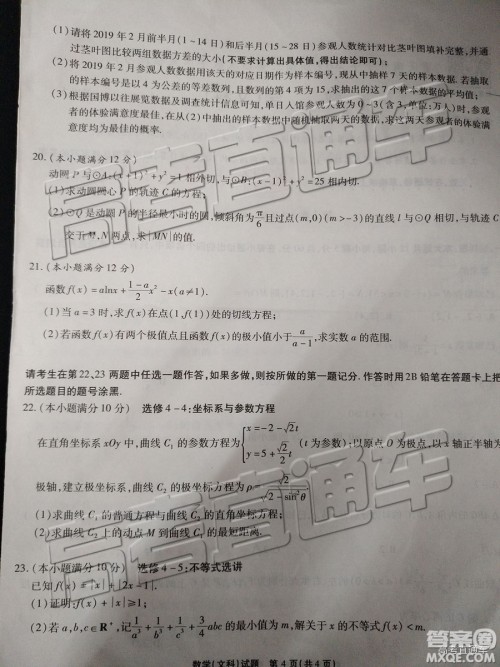 (1)请将 2019 年 2 月前半月(1~14 日)和后半月(15~28 日)参观人数统计对比茎叶图填补完整,并通
过茎叶图比较两组数据方差的大小(不要求计算出具体值,得出结论即可);
(2)将 2019 年 2 月参观人数数据用该天的对应日期作为样本编号,现从中抽样 7 天的样本数据.若抽取
的样本编号是以 4 为公差的等差数列,且数列的第 4 项为 15,求抽出的这 7 个样本数据的平均值;
(3)根据国博以往展览数据及调查统计信息可知,单日入馆参观人数为 0~3(含 3,单位:万人)时,参观
者的体验满意度最佳,在(2)中抽出的样本数据中随机抽取两天的数据,求这两天参观者的体验满
意度均为最佳的概率.
20.(本小题满分 12 分)
动圆 P 与⊙A:(x+1)²+y²=1 相外切,与⊙B:(x-1)²+y²=25 相内切.
(1)求动圆圆心 P 的轨迹 C 的方程;
(2)⊙Q 是动圆 P 的半径最小时的圆,倾斜角为π/6且过点(m,0)(m>-3)的直线 l 与⊙Q 相切,与
交于 M,N 两点,求|MN|的值.
21.(本小题满分 12 分)
函数 f(x)=alnx+(1-a)/2 x²-x(a≠1).
(1)当 a=3 时,求函数 f(x)在点(1,f(1))处的切线方程;
(2)若函数 f(x)有两个极值点且函数 f(x)的极小值小于 a/(a-1),求实数 a 的范围.
请考生在第 22、23 两题中任选一题作答,如果多做,则按所做的第一题记分.作答时用 2B 铅笔在答题卡上把
所选题目的题号涂黑.
22.(本小题满分 10 分) 选修 4-4:坐标系与参数方程
在直角坐标系 xOy 中,曲线 C₁ 的参数方程为{x=-2-√2t, y=5+√2/2 t (t 为参数);以原点 O 为极点,以 x 轴正半轴为
极轴,建立极坐标系,曲线 C₂ 的极坐标方程为 ρ=√2/√(2-sin²θ)
(1)求曲线 C₁ 的普通方程与曲线 C₂ 的直角坐标方程;
(2)求曲线 C₂ 上的动点 M 到曲线 C₁ 的最短距离.
23.(本小题满分 10 分) 选修 4-5:不等式选讲
已知 f(x)=|x|+|2x-1|.
(1)证明:f(x)+|x|≥1;
(2)若 a,b,c∈R⁺,记 1/a³+1/b³+1/c³+3/4 abc 的最小值为 m,解关于 x 的不等式 f(x)<m.
数学(文科)试题 第 4 页(共 4 页)
高考直通车
高考直通车
高考直通车
答案圈